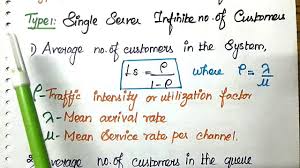 Type1: Single Server Infinite no. of Customers
1) Average no. of customers in the System,
Ls = ρ / 1-ρ where ρ = λ / μ
ρ - Traffic intensity or utilization factor
λ - Mean arrival rate
μ - Mean Service rate per channel.
2) Average no. of customers in the queue